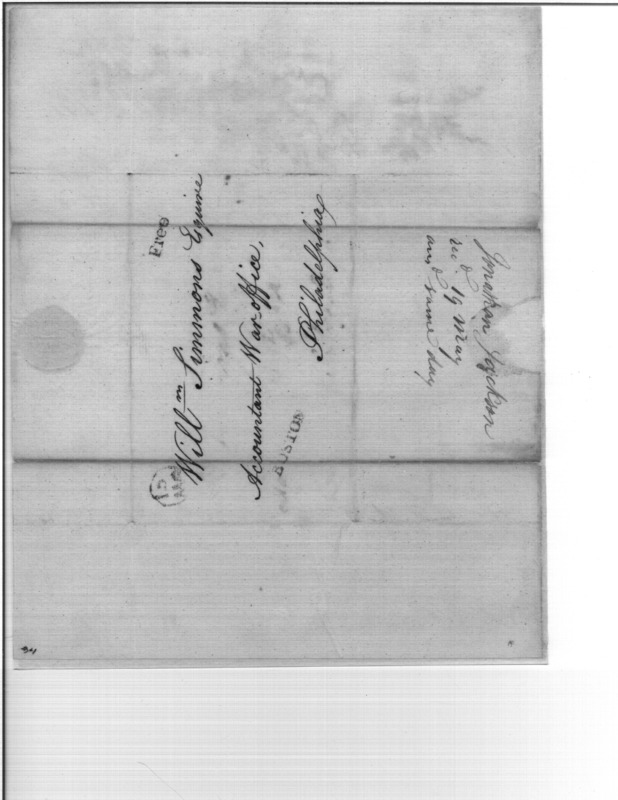 Free
Will^m Simmons Equire
Accountant War office,
Philadelphia
BOSTON
15
Jonathan Jackson
rec.d 19 May
an.d same day